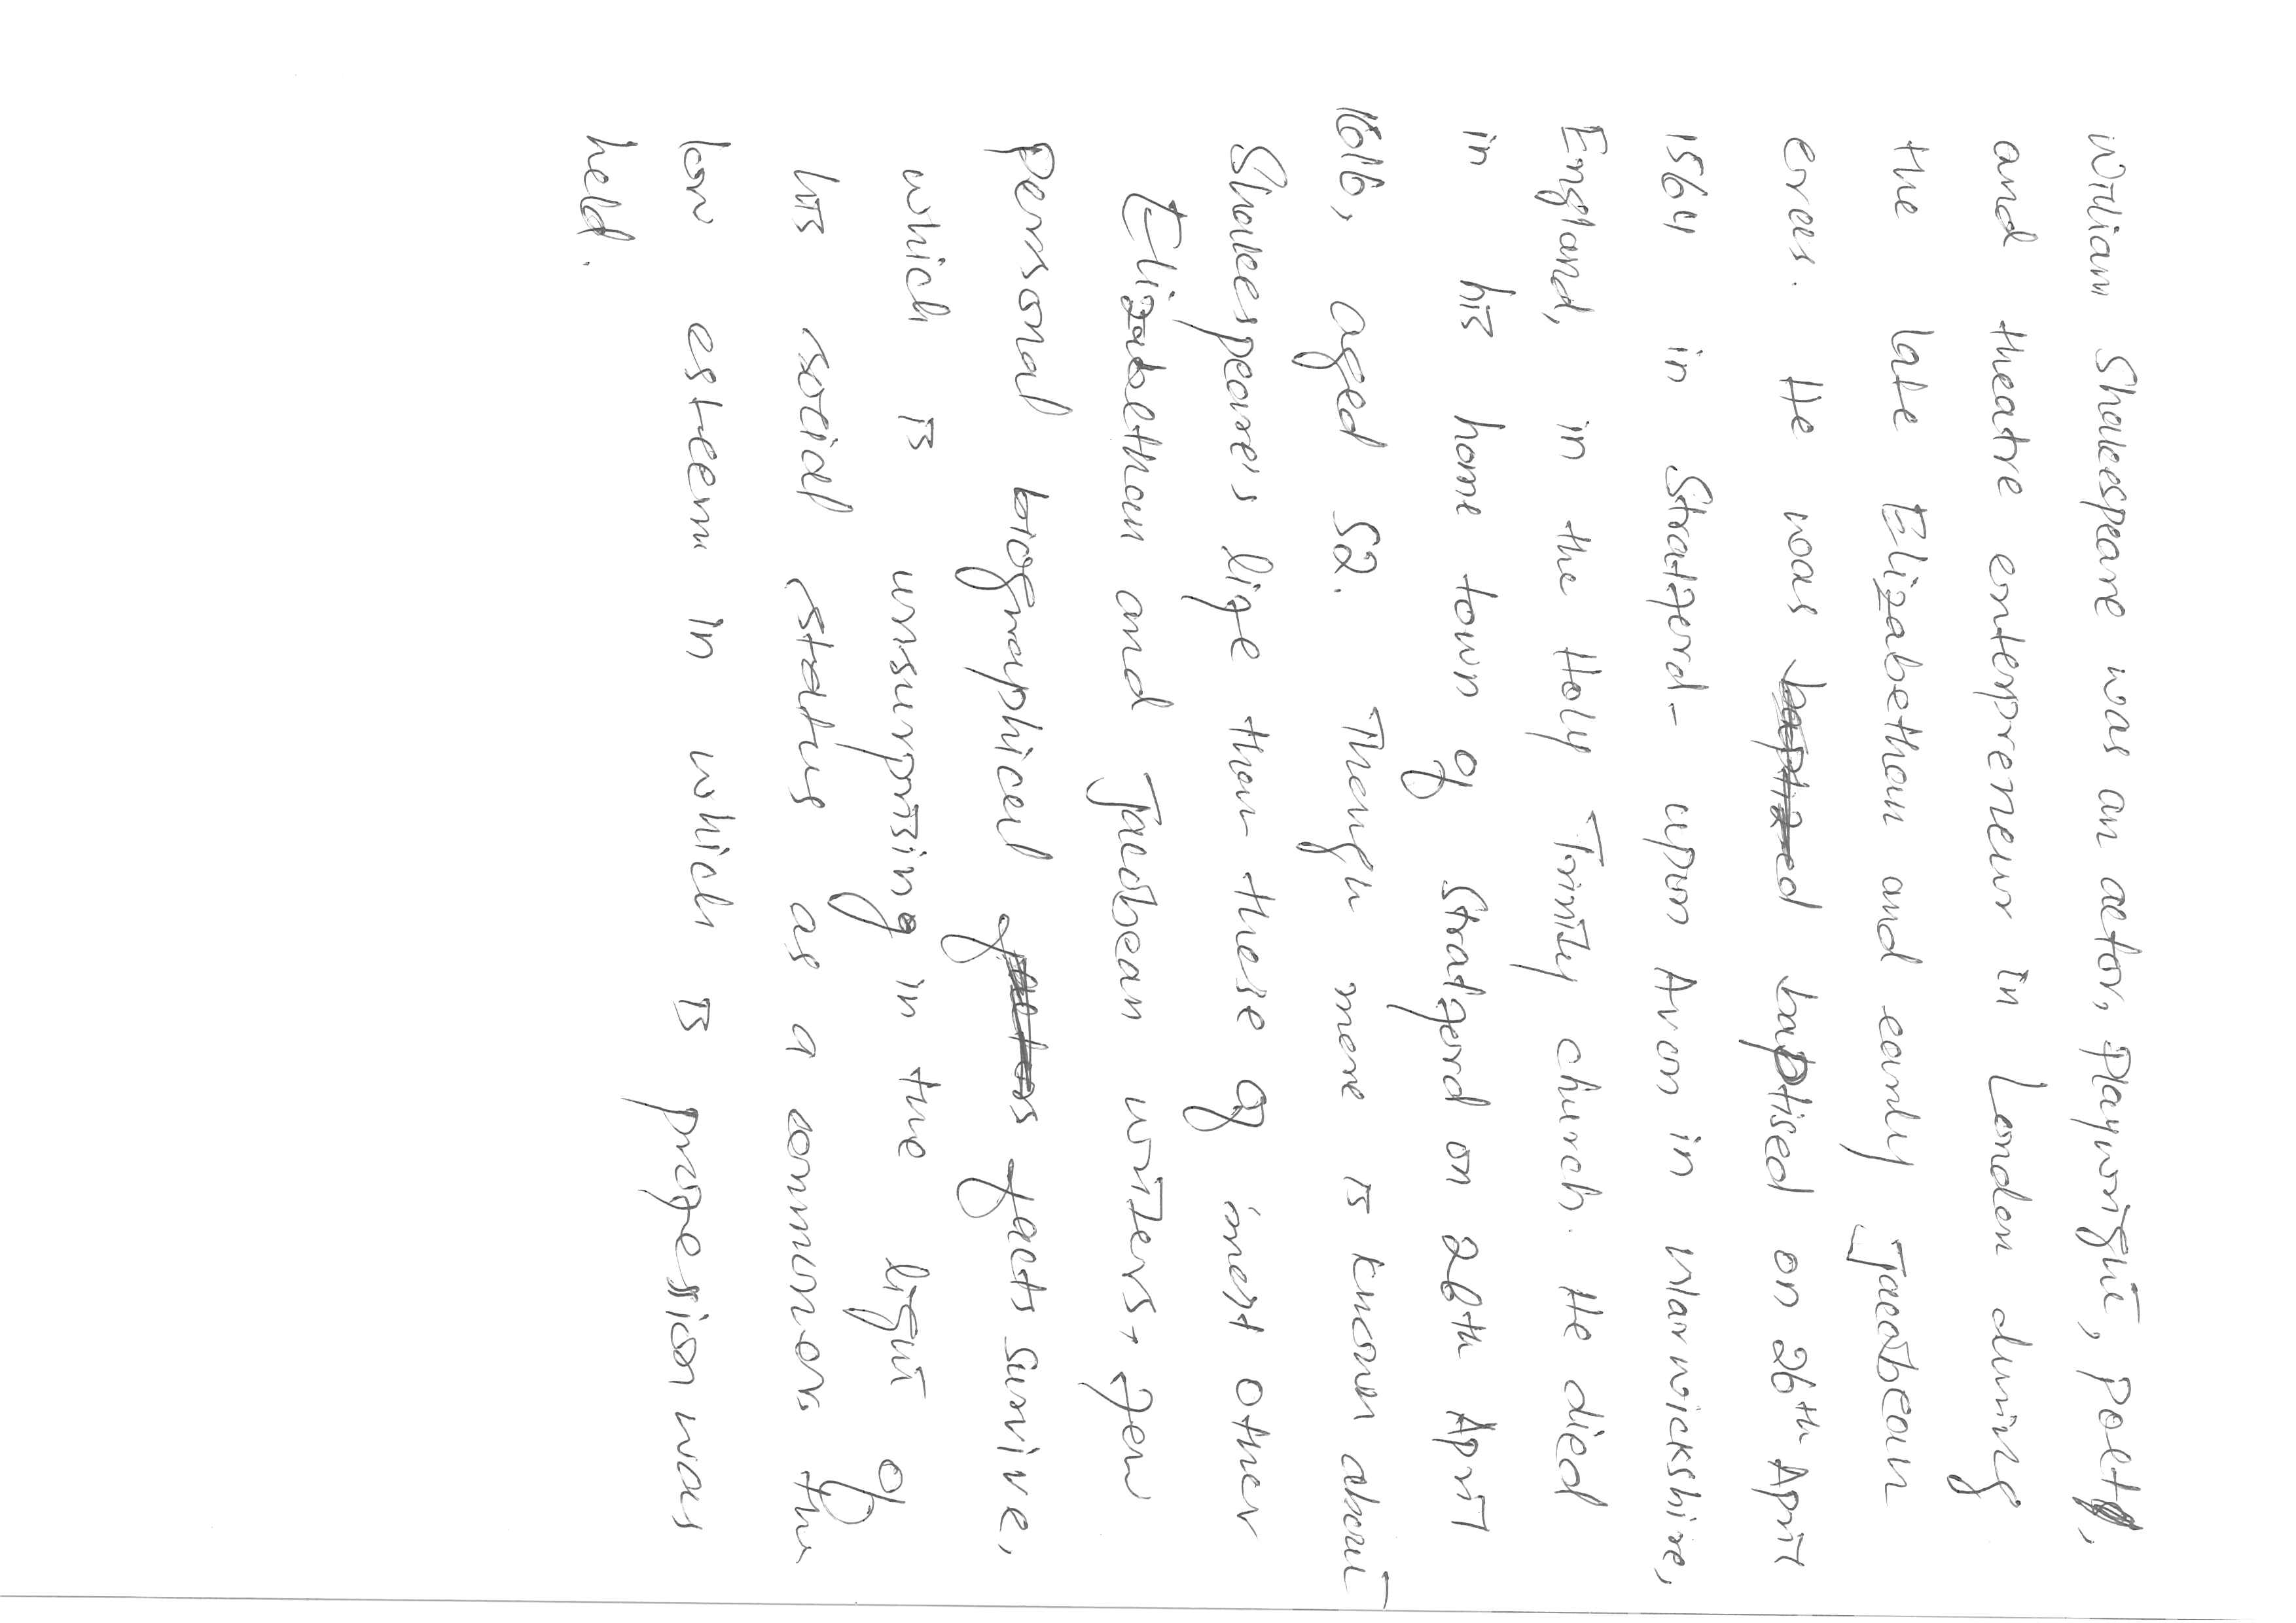 William Shakespeare was an actor, playwright, poet,
and theatre enterpreneur in London during
the late Elizabethan and early Jacobean
eras. He was baptized baptised on 26th April
1564 in Stratford- upon Avon in Warwickshire,
England, in the Holy Trinity church. He died
in his home town of Stratford on 26th April
1616, aged 52. Though more is known about
Shakespeare's life than those of most other
Elizabethan and Jacobean writers, few
personal biographical factors facts survive,
which is unsurprising in the light of
his social status as a commoner, the
low esteem in which is profession was
held.